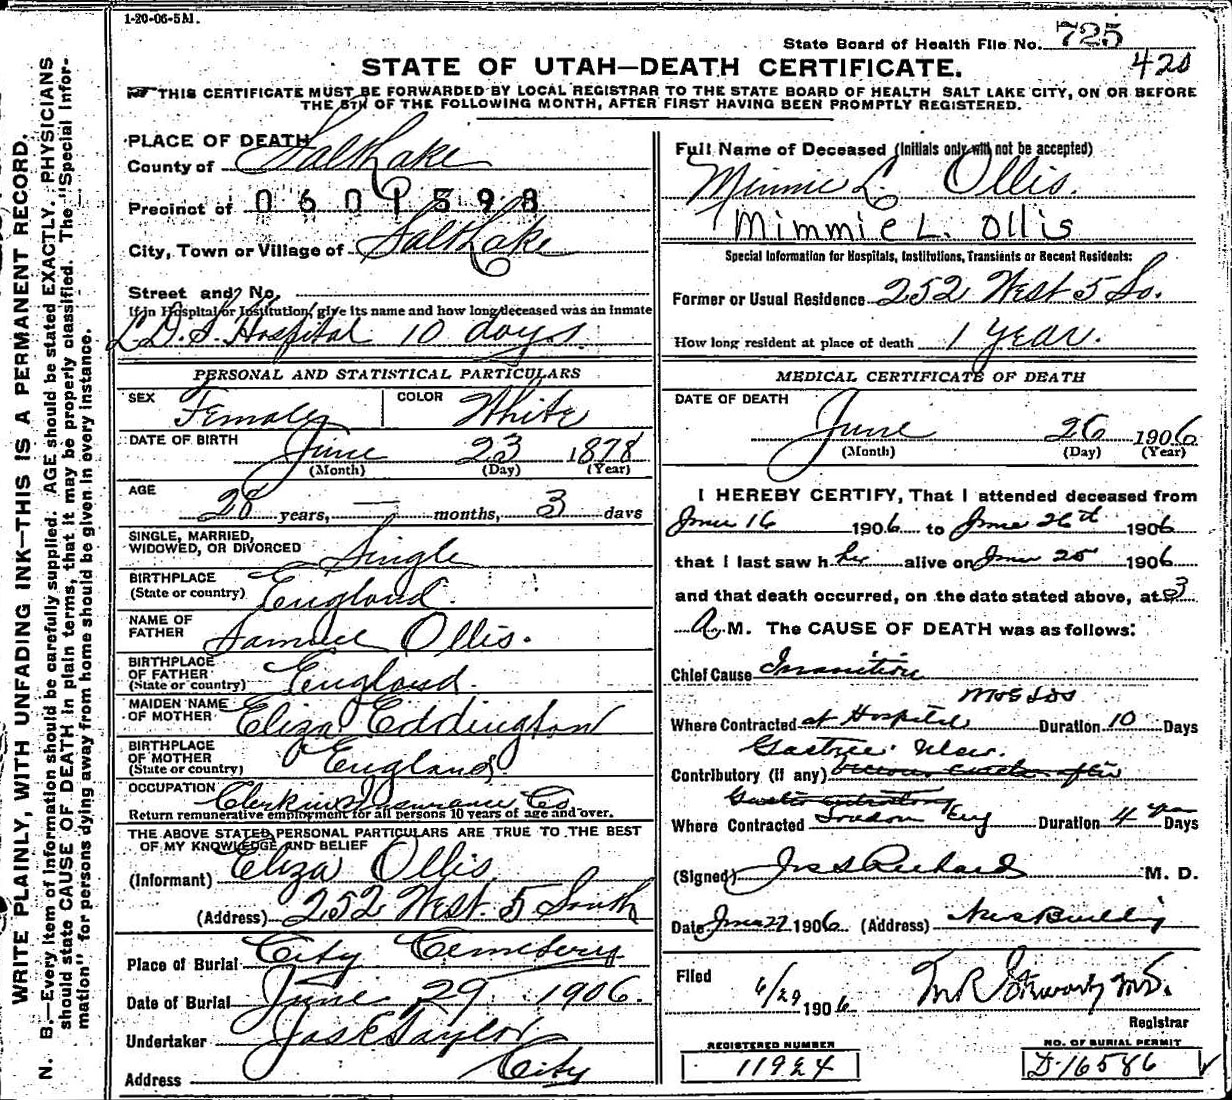 1-20-06-5M.
State Board of Health File No. 725
420
STATE OF UTAH—DEATH CERTIFICATE.
THIS CERTIFICATE MUST BE FORWARDED BY LOCAL REGISTRAR TO THE STATE BOARD OF HEALTH SALT LAKE CITY, ON OR BEFORE
THE 5TH OF THE FOLLOWING MONTH, AFTER FIRST HAVING BEEN PROMPTLY REGISTERED.
WRITE PLAINLY, WITH UNFADING INK—THIS IS A PERMANENT RECORD.
N. B.—Every item of information should be carefully supplied. AGE should be stated EXACTLY. PHYSICIANS
should state CAUSE OF DEATH in plain terms, that it may be properly classified. The "Special Infor-
mation" for persons dying away from home should be given in every instance.
PLACE OF DEATH
County of Salt Lake
Precinct of 0601598
City, Town or Village of Salt Lake
Street and No.
If in Hospital or Institution, give its name and how long deceased was an inmate
L.D.S. Hospital 10 days.
PERSONAL AND STATISTICAL PARTICULARS
SEX Female COLOR White
DATE OF BIRTH June 23 1878
(Month) (Day) (Year)
AGE 28 years, — months, 3 days
SINGLE, MARRIED,
WIDOWED, OR DIVORCED Single
BIRTHPLACE
(State or country) England.
NAME OF
FATHER Samuel Ollis.
BIRTHPLACE
OF FATHER
(State or country) England.
MAIDEN NAME
OF MOTHER Eliza Eddington
BIRTHPLACE
OF MOTHER
(State or country) England.
OCCUPATION Clerk in Insurance Co
Return remunerative employment for all persons 10 years of age and over.
THE ABOVE STATED PERSONAL PARTICULARS ARE TRUE TO THE BEST
OF MY KNOWLEDGE AND BELIEF
(Informant) Eliza Ollis
(Address) 252 West. 5 South
Place of Burial City Cemetery
Date of Burial June 29 1906.
Undertaker Jas E Taylor
Address City
Full Name of Deceased (Initials only will not be accepted)
Minnie L. Ollis.
Mimmie L. Ollis
Special Information for Hospitals, Institutions, Transients or Recent Residents:
Former or Usual Residence 252 West 5 So.
How long resident at place of death 1 Year.
MEDICAL CERTIFICATE OF DEATH
DATE OF DEATH
June 26 1906
(Month) (Day) (Year)
I HEREBY CERTIFY, That I attended deceased from
June 16 1906 to June 26th 1906
that I last saw her alive on June 25 1906
and that death occurred, on the date stated above, at 3
A. M. The CAUSE OF DEATH was as follows:
Chief Cause Inanition
Where Contracted at Hospital Duration 10 Days
Gastric Ulcer.
Contributory (if any) vicious circle after
Where Contracted London Eng Duration 4 years Days
(Signed) M. D.
Date June 27 1906 (Address) News Building
Filed 6/29 1906
Registrar
REGISTERED NUMBER
11924
NO. OF BURIAL PERMIT
D-16586